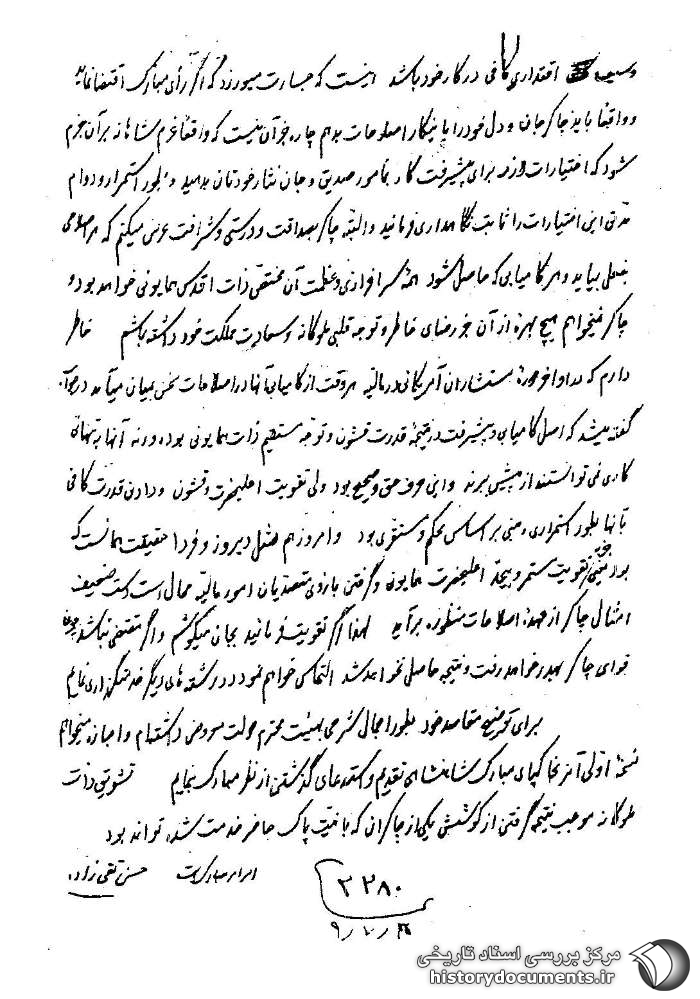 وسیعه اقتداری کافی در کار خود باشد اینست که جسارت میورزد که اگر رأی مبارک اقتضا نماید
و واقعاً باید چاکر جان و دل خود را پای اینکار اصلاحات بدهم چاره جز آن نیست که واقعاً عزم شاهانه بر آن جزم
شود که اختیارات لازمه برای پیشرفت کار بمأمور صدیق و جان نثار خودتان بدهید و بطور استمرار و دوام
مدتی این اختیارات را ثابت نگاهداری فرمائید والبته چاکر بصداقت و درستی و شرافت عرض میکنم که هر اصلاحی
بعمل بیاید و هر کامیابی که حاصل شود همۀ سرافرازی و عظمت آن مختص ذات اقدس همایونی خواهد بود و
چاکر نمیخواهم هیچ بهره از آن جز رضای خاطر و توجه قلبی ملوکانه و سعادت مملکت خود داشته باشم خاطر
دارم که در اواخر دورۀ مستشاران آمریکائی در مالیه هر وقت از کامیابی آنها در اصلاحات سخن بمیان میآمد در جواب
گفته میشد که اصل کامیابی و پیشرفت در نتیجۀ قدرت قشون و توجه مستقیم ذات همایونی بوده ورنه آنها به تنهائی
کاری نمی توانستند از پیش ببرند و این حرف حق و صحیح بود ولی تقویت اعلیحضرت و قشون و دادن قدرت کافی
بآنها بطور استمراری و مبنی بر اساس محکم و مستقری بود و امروز هم مثل دیروز و فردا حقیقت همانست که
بدون چنین تقویت مستمر و بیحد اعلیحضرت همایون و گرفتن بازوی متصدیان امور مالیه محال است کتف ضعیف
امثال چاکر از عهدۀ اصلاحات منظوره برآید لهذا اگر تقویت فرمائید بجان میکوشم و اگر مقتضی نباشد چون
قوای چاکر بهدر خواهد رفت و نتیجه حاصل نخواهد شد التماس خواهم نمود در رشته های دیگر خدمتگذاری نمایم
برای توضیح مقاصد خود بطور اجمال شرحی بهیئت محترم دولت معروض داشته‌ام و اجازه میخواهم
نسخۀ اولی آنرا بخاکپای مبارک شاهنشاهی تقدیم و استدعای گذشتن از نظر مبارک بنمایم تشویق ذات
ملوکانه موجب نتیجه گرفتن از کوشش یکی از چاکران که با نیت پاک حاضر خدمت شده تواند بود
امر امر مبارک است حسن تقی زاده
۲۲۸۰
مرکز بررسی اسناد تاریخی
historydocuments.ir